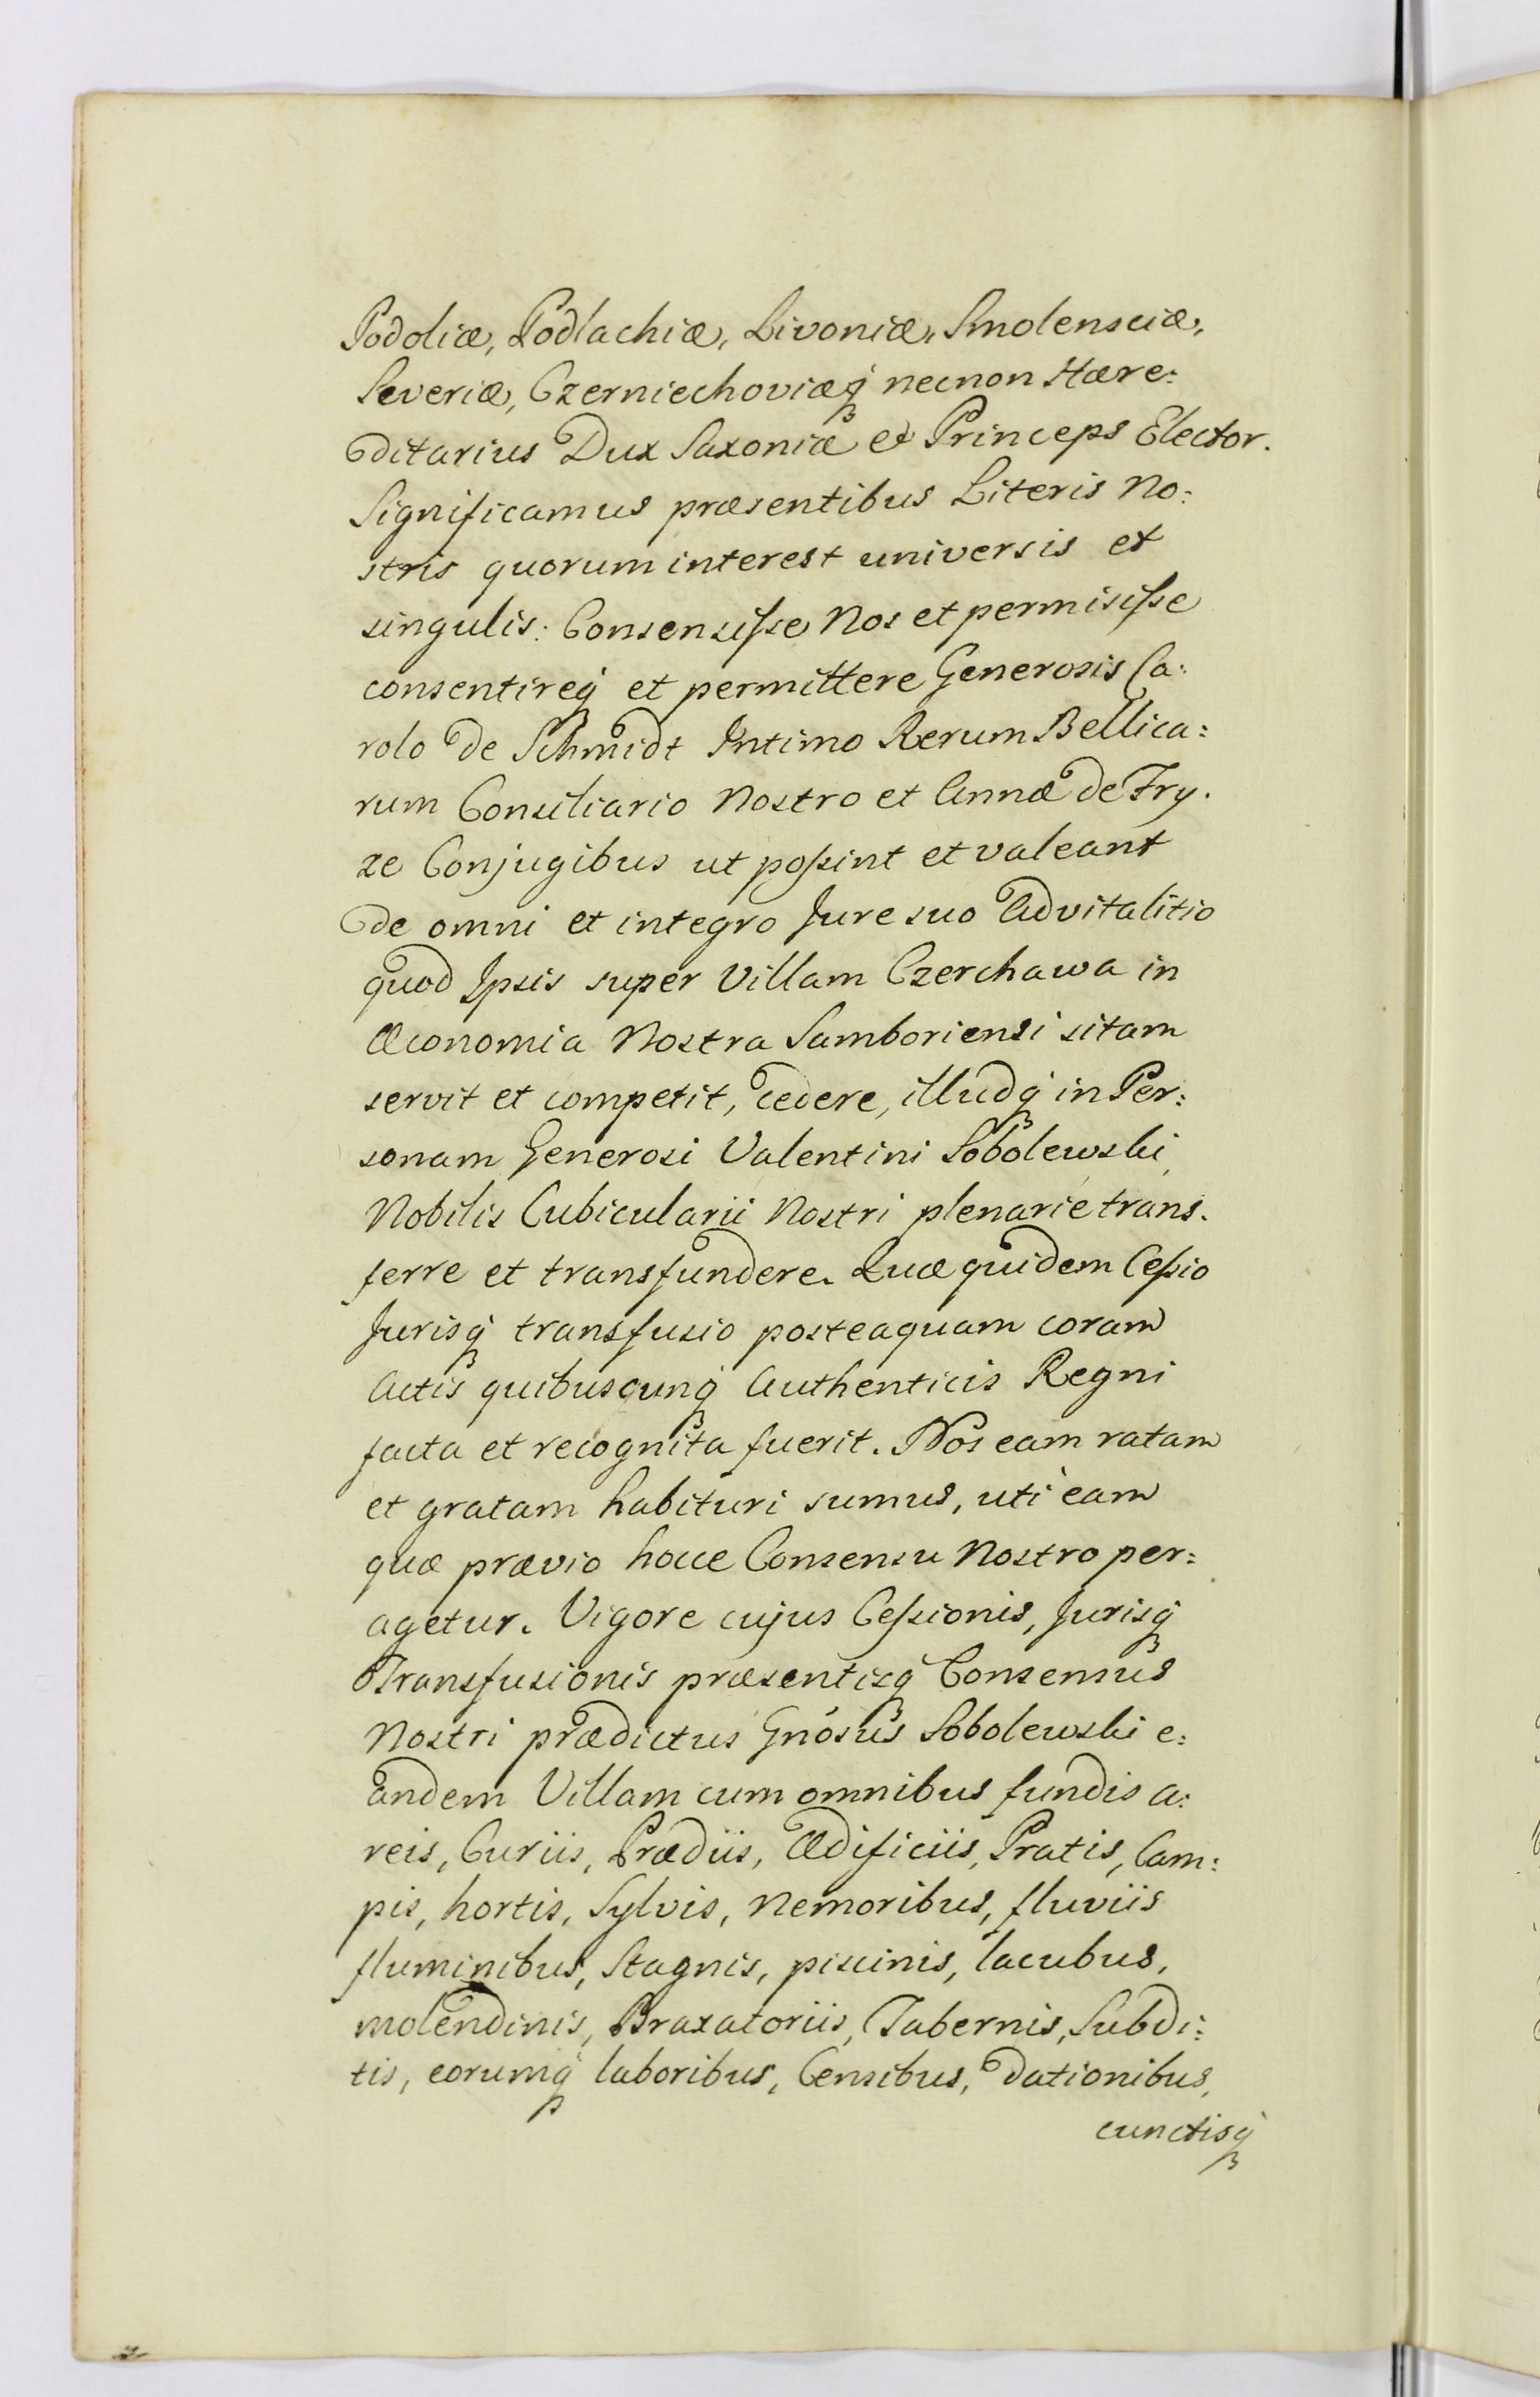 Podoliæ, Podlachiæ, Livoniæ, Smolensciæ,
Severiæ, Czerniechoviæq́ necnon Hære:
ditarius Dux Saxoniæ et Princeps Elector.
Significamus præsentibus Literis No:
stris quorum interest universis et
singulis: Consensiſse Nos et permisiſse
consentireq́ et permittere Generosis Ca:
rolo de Schmidt Intimo Rerum Bellica:
rum Consiliario Nostro et Annæ de Fry.
ze Conjugibus ut poſsint et valeant
de omni et integro Jure suo Advitalitio
quod Ipsis super Villam Czerchawa in
Œconomia Nostra Samboriensi sitam
servit et competit, cedere, illudq́ in Per:
sonam Generosi Valentini Sobolewski
Nobilis Cubicularii Nostri plenarie trans.
ferre et transfundere. Quæ quidem Ceſsio
Jurisq́ transfusio posteaquam coram
Actis quibuscunq́ Authenticis Regni
facta et recognita fuerit. Nos eam ratam
et gratam habituri sumus, uti eam
quæ prævio hocce Consensu Nostro per:
agetur. Vigore cujus Ceſsionis, Jurisq́
Transfusionis præsentisq́ Consensus
Nostri prædictus Gnósus Sobolewski e:
andem Villam cum omnibus fundis a:
reis, Curiis, Prædiis, Ædificiis, Pratis, Cam:
pis, hortis, Sylvis, Nemoribus, fluviis
fluminibus, Stagnis, piscinis, lacubus,
molendinis, Braxatoriis, Tabernis, Subdi:
tis, eorumq́ laboribus, Censibus, Dationibus,
cunctisq́